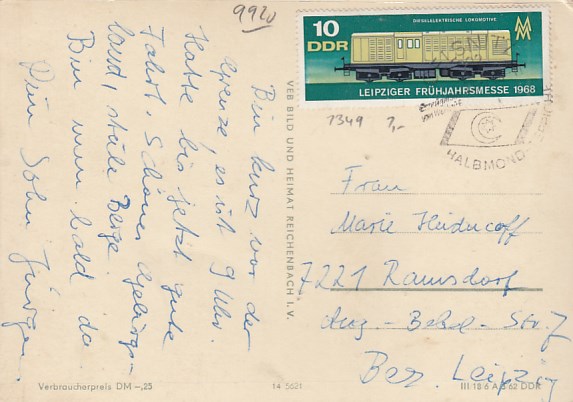 9920
10
DDR
DIESELELEKTRISCHE LOKOMOTIVE
LEIPZIGER FRÜHJAHRSMESSE 1968
7349 7,-
HALBMOND
Bin kurz vor der
Grenze, es ist 9 Uhr.
Hatte bis jetzt gute
Fahrt. Schönes Gebirgs-
land, steile Berge.
Bin nun bald da
Dein Sohn Jürgen.
VEB BILD UND HEIMAT REICHENBACH I. V.
Frau
Marie
7221 Ramsdorf
Aug.-Bebel-Str. 7
Bez. Leipzig
Verbraucherpreis DM -,25
14 5621
III 18 6 A 3 62 DDR